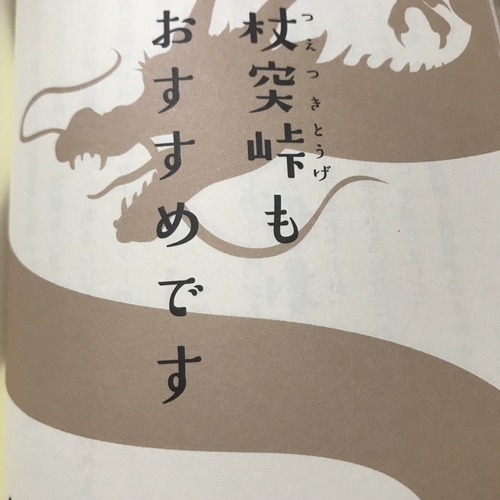 杖突峠も
つえつきとうげ
おすすめです